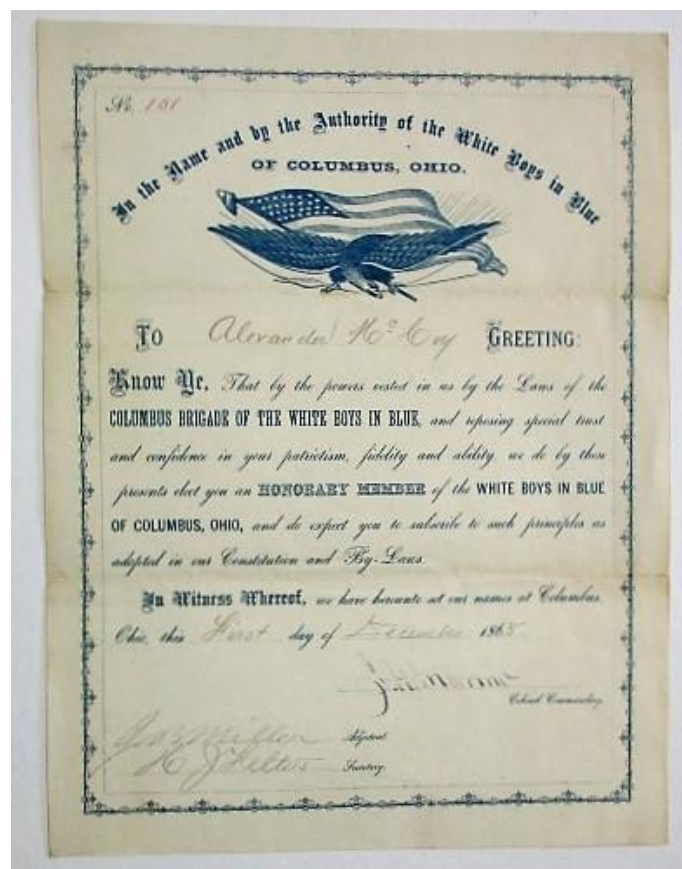 No. 101
In the Name and by the Authority of the White Boys in Blue
OF COLUMBUS, OHIO.
To Alexander McCoy GREETING:
Know Ye, That by the powers vested in us by the Laws of the
COLUMBUS BRIGADE OF THE WHITE BOYS IN BLUE, and reposing special trust
and confidence in your patriotism, fidelity and ability, we do by these
presents elect you an HONORARY MEMBER of the WHITE BOYS IN BLUE
OF COLUMBUS, OHIO, and do expect you to subscribe to such principles as
adopted in our Constitution and By-Laws.
In Witness Whereof, we have hereunto set our names at Columbus,
Ohio, this First day of December 1868.
Colonel Commanding.
Miller Adjutant.
Secretary.